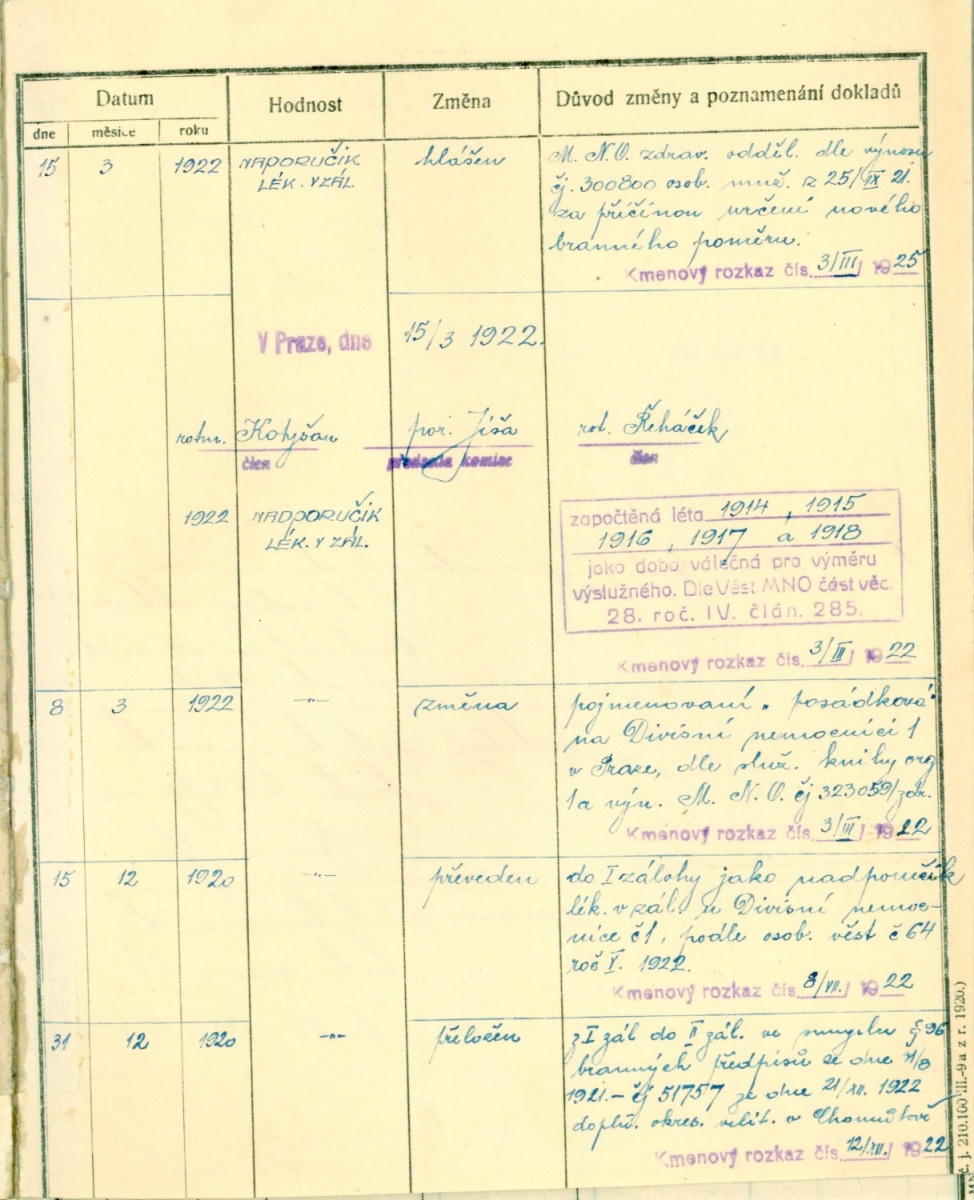 Datum Hodnost Změna Důvod změny a poznamenání dokladů
dne měsíce roku
15 3 1922 NAPORUČIK hlášen M. N. O. zdrav. odděl. dle výnosu
LÉK. V ZÁL. čj. 300800 osob. muž. z 25/IX 21.
za příčinou určení nového
branného poměru.
Kmenový rozkaz čís. 3/III 1925
V Praze, dne 15/3 1922.
rotm. Kotyšan por. Jíša rot. Řeháček
člen předseda komise člen
1922 NADPORUČIK
LÉK. V ZÁL.
započtěná léta 1914, 1915
1916, 1917 a 1918
jako doba válečná pro výměru
výslužného. Dle Věst. MNO část věc.
28. roč. IV. člán. 285.
Kmenový rozkaz čís. 3/III 1922
8 3 1922 -"- změna pojmenovaní „posádková"
na Divisní nemocnici 1
v Praze, dle služ. knihy org
1a výn. M. N. O. čj 323059/zdr.
Kmenový rozkaz čís. 3/III 1922
15 12 1920 -"- převeden do I zálohy jako nadporučík
lék. v zál. u Divisní nemoc-
nice č1, podle osob. věst č 64
roč V. 1922.
Kmenový rozkaz čís. 8/VII. 1922
31 12 1920 -"- přeložen z I zál do II zál. ve smyslu § 96
branných předpisů ze dne /8
1921.- čj 51757 ze dne 21/XII. 1922
doplň. okres. velit. v Chomutově
Kmenový rozkaz čís. 12/XII. 1922
č. j. 210.100/III.-9 a z r. 1920.)